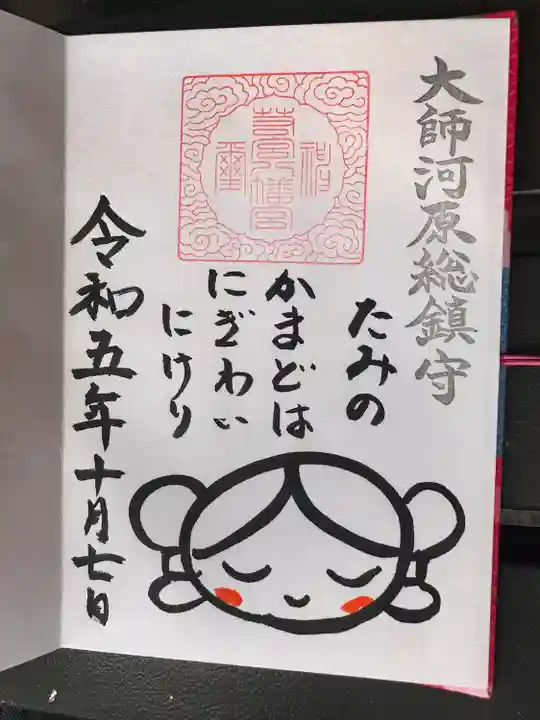 大師河原総鎮守
たみの
かまどは
にぎわい
にけり
令和五年十月七日